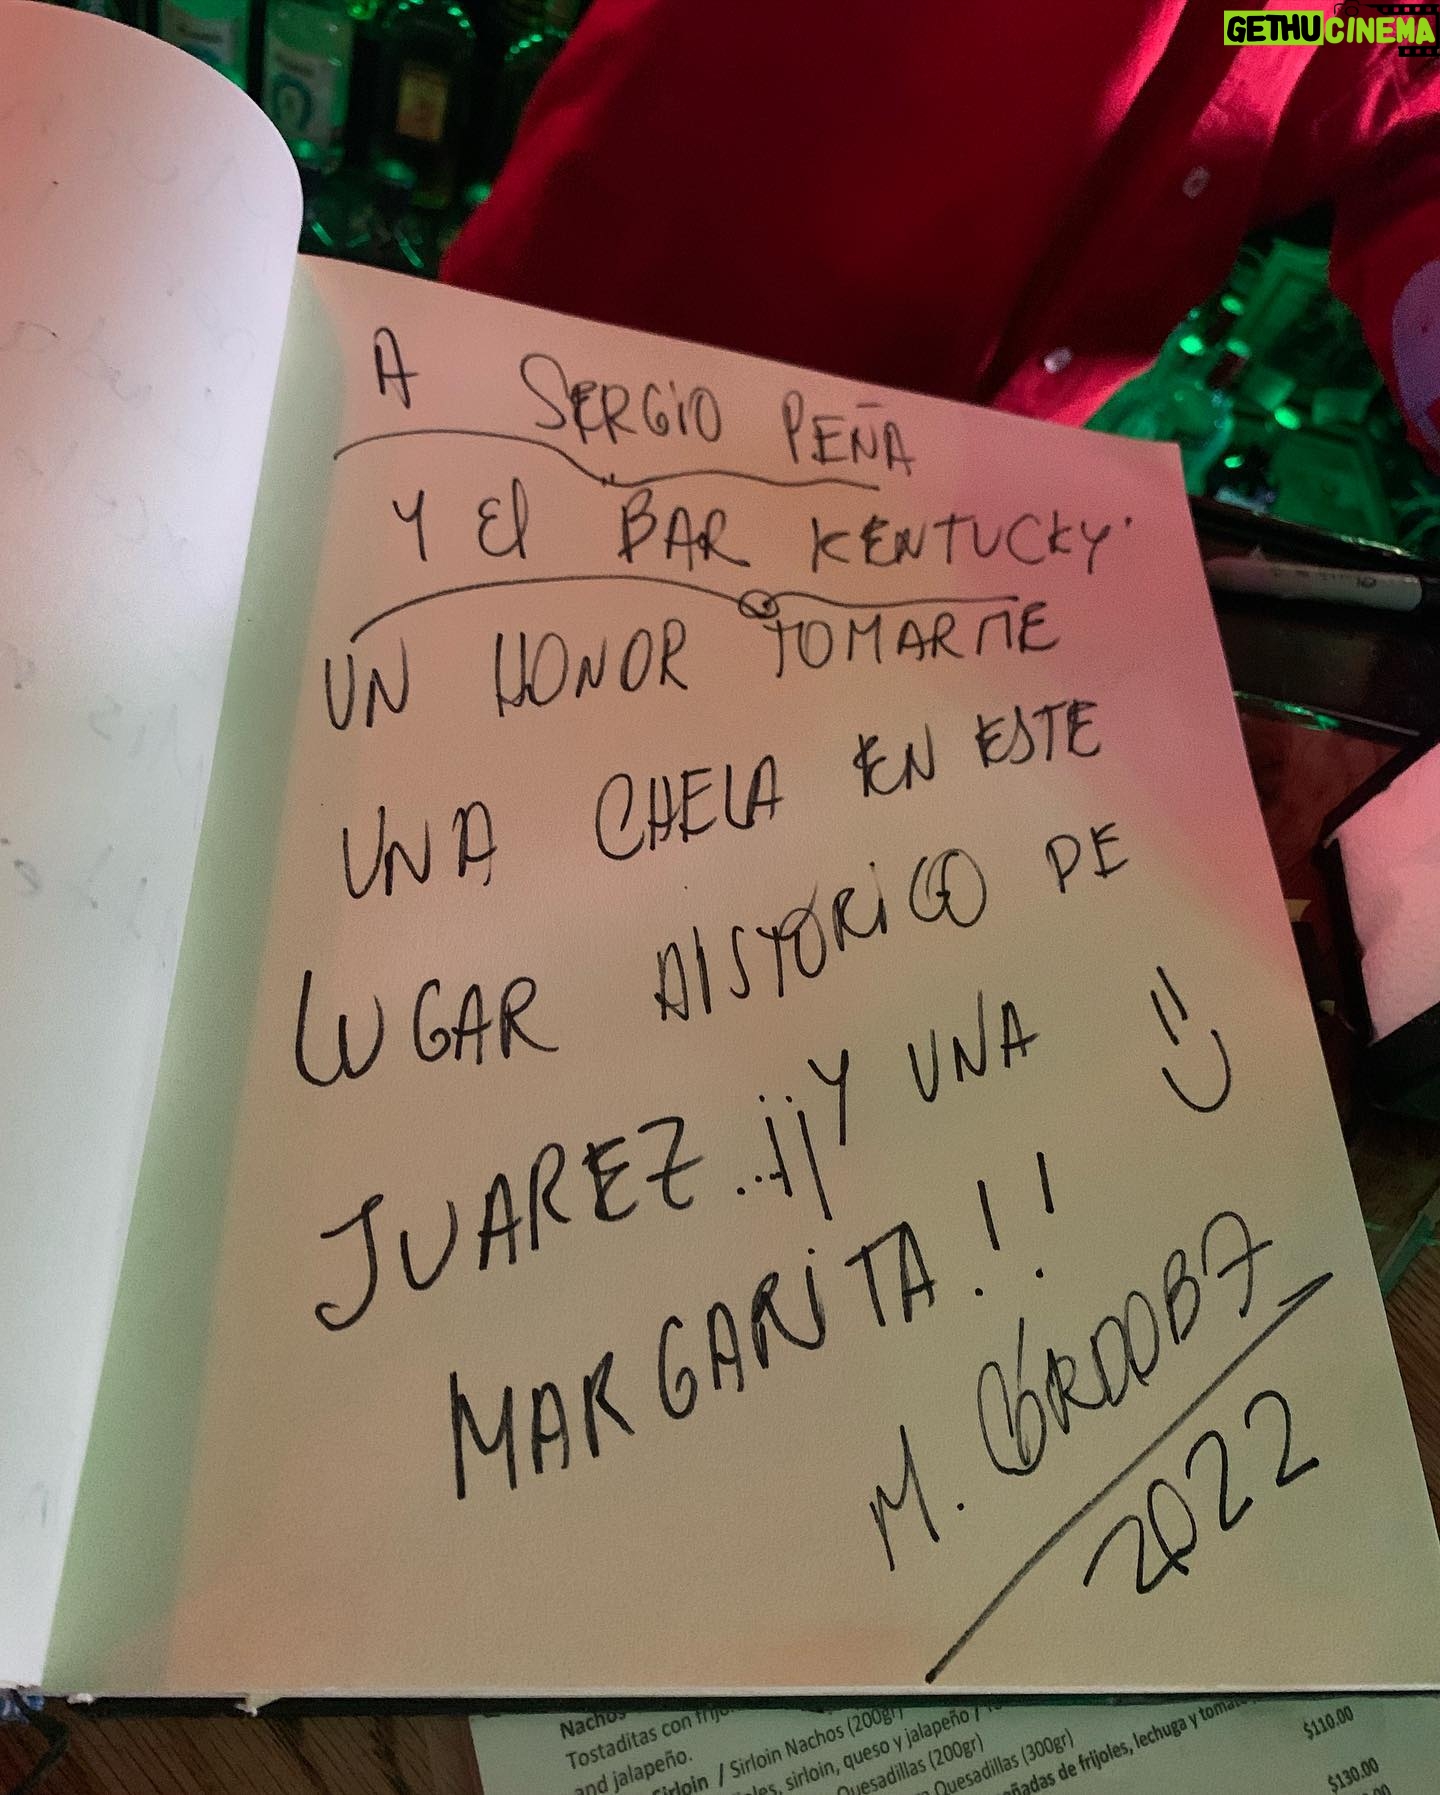 GETHUCINEMA
A SERGIO PEÑA
Y El BAR KENTUCKY.
UN HONOR TOMARME
UNA CHELA EN ESTE
LUGAR HISTÓRICO DE
JUAREZ...¡¡Y UNA
MARGARITA!!
M. CÓRDOBA
2022
Nachos
Tostaditas con frijo
and jalapeño.
Sirloin / Sirloin Nachos (200gr)
les, sirloin, queso y jalapeño /
Quesadillas (200gr)
Quesadillas (300gr)
ñadas de frijoles, lechuga y tomate
$110.00
$130.00